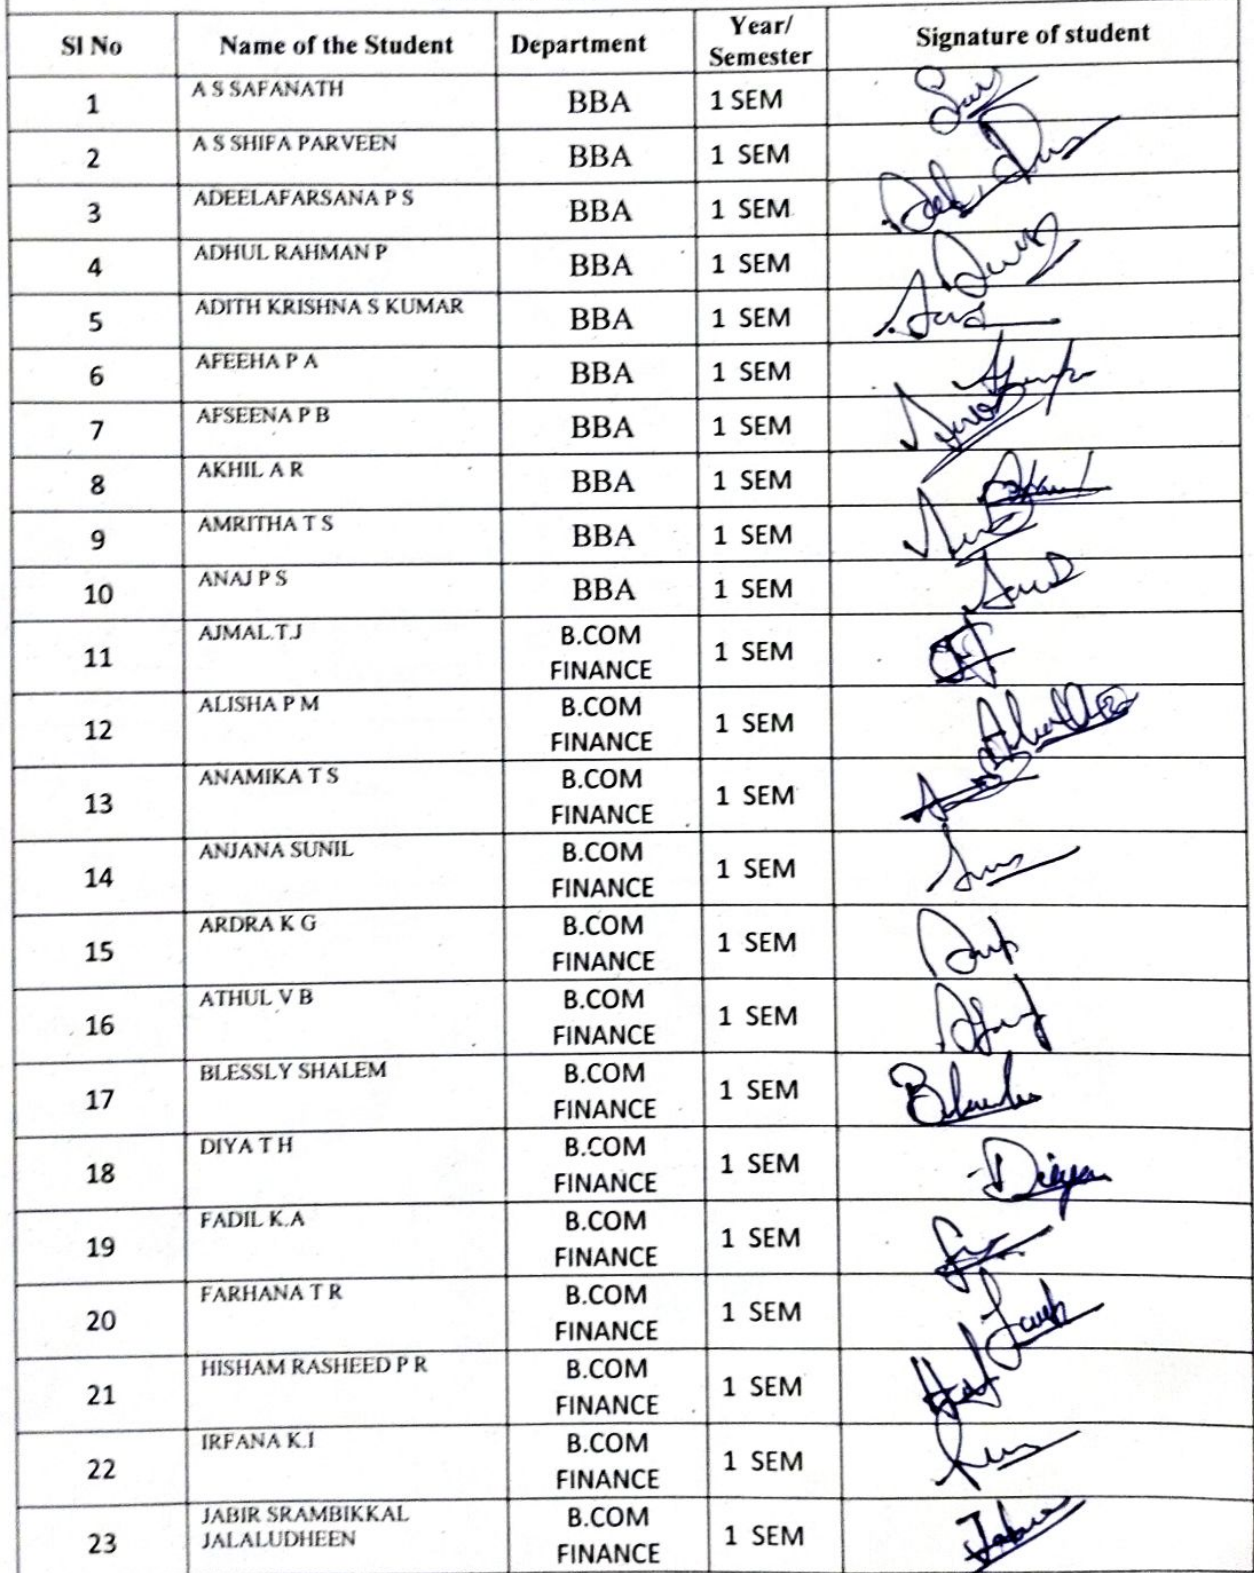 Sl No Name of the Student Department Year/ Semester Signature of student
1 A S SAFANATH BBA 1 SEM
2 A S SHIFA PARVEEN BBA 1 SEM
3 ADEELAFARSANA P S BBA 1 SEM
4 ADHUL RAHMAN P BBA 1 SEM
5 ADITH KRISHNA S KUMAR BBA 1 SEM
6 AFEEHA P A BBA 1 SEM
7 AFSEENA P B BBA 1 SEM
8 AKHIL A R BBA 1 SEM
9 AMRITHA T S BBA 1 SEM
10 ANAJ P S BBA 1 SEM
11 AJMAL.T.J B.COM FINANCE 1 SEM
12 ALISHA P M B.COM FINANCE 1 SEM
13 ANAMIKA T S B.COM FINANCE 1 SEM
14 ANJANA SUNIL B.COM FINANCE 1 SEM
15 ARDRA K G B.COM FINANCE 1 SEM
16 ATHUL V B B.COM FINANCE 1 SEM
17 BLESSLY SHALEM B.COM FINANCE 1 SEM
18 DIYA T H B.COM FINANCE 1 SEM Diya
19 FADIL K.A B.COM FINANCE 1 SEM
20 FARHANA T R B.COM FINANCE 1 SEM
21 HISHAM RASHEED P R B.COM FINANCE 1 SEM
22 IRFANA K.I B.COM FINANCE 1 SEM
23 JABIR SRAMBIKKAL JALALUDHEEN B.COM FINANCE 1 SEM